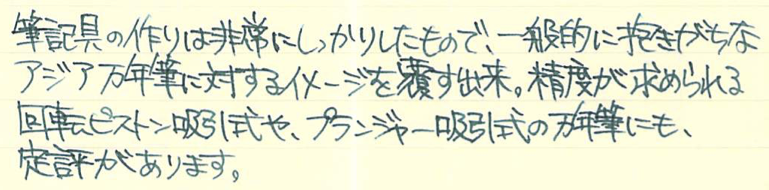 筆記具の作りは非常にしっかりしたもので、一般的に抱きがちな
アジア万年筆に対するイメージを覆す出来。精度が求められる
回転ピストン吸引式や、プランジャー吸引式の万年筆にも、
定評があります。